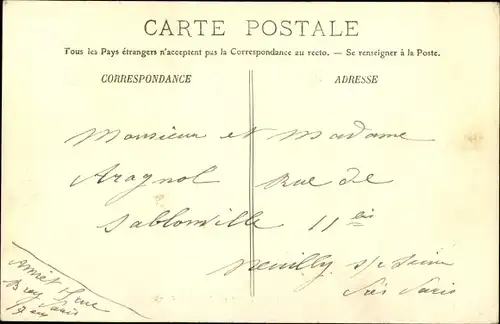 CARTE POSTALE
Tous les Pays étrangers n'acceptent pas la Correspondance au recto. — Se renseigner à la Poste.
CORRESPONDANCE
ADRESSE
Monsieur et Madame
Aragnol Rue de
Sablonville 11 bis
Neuilly s/ Seine
Près Paris
rue
Paris